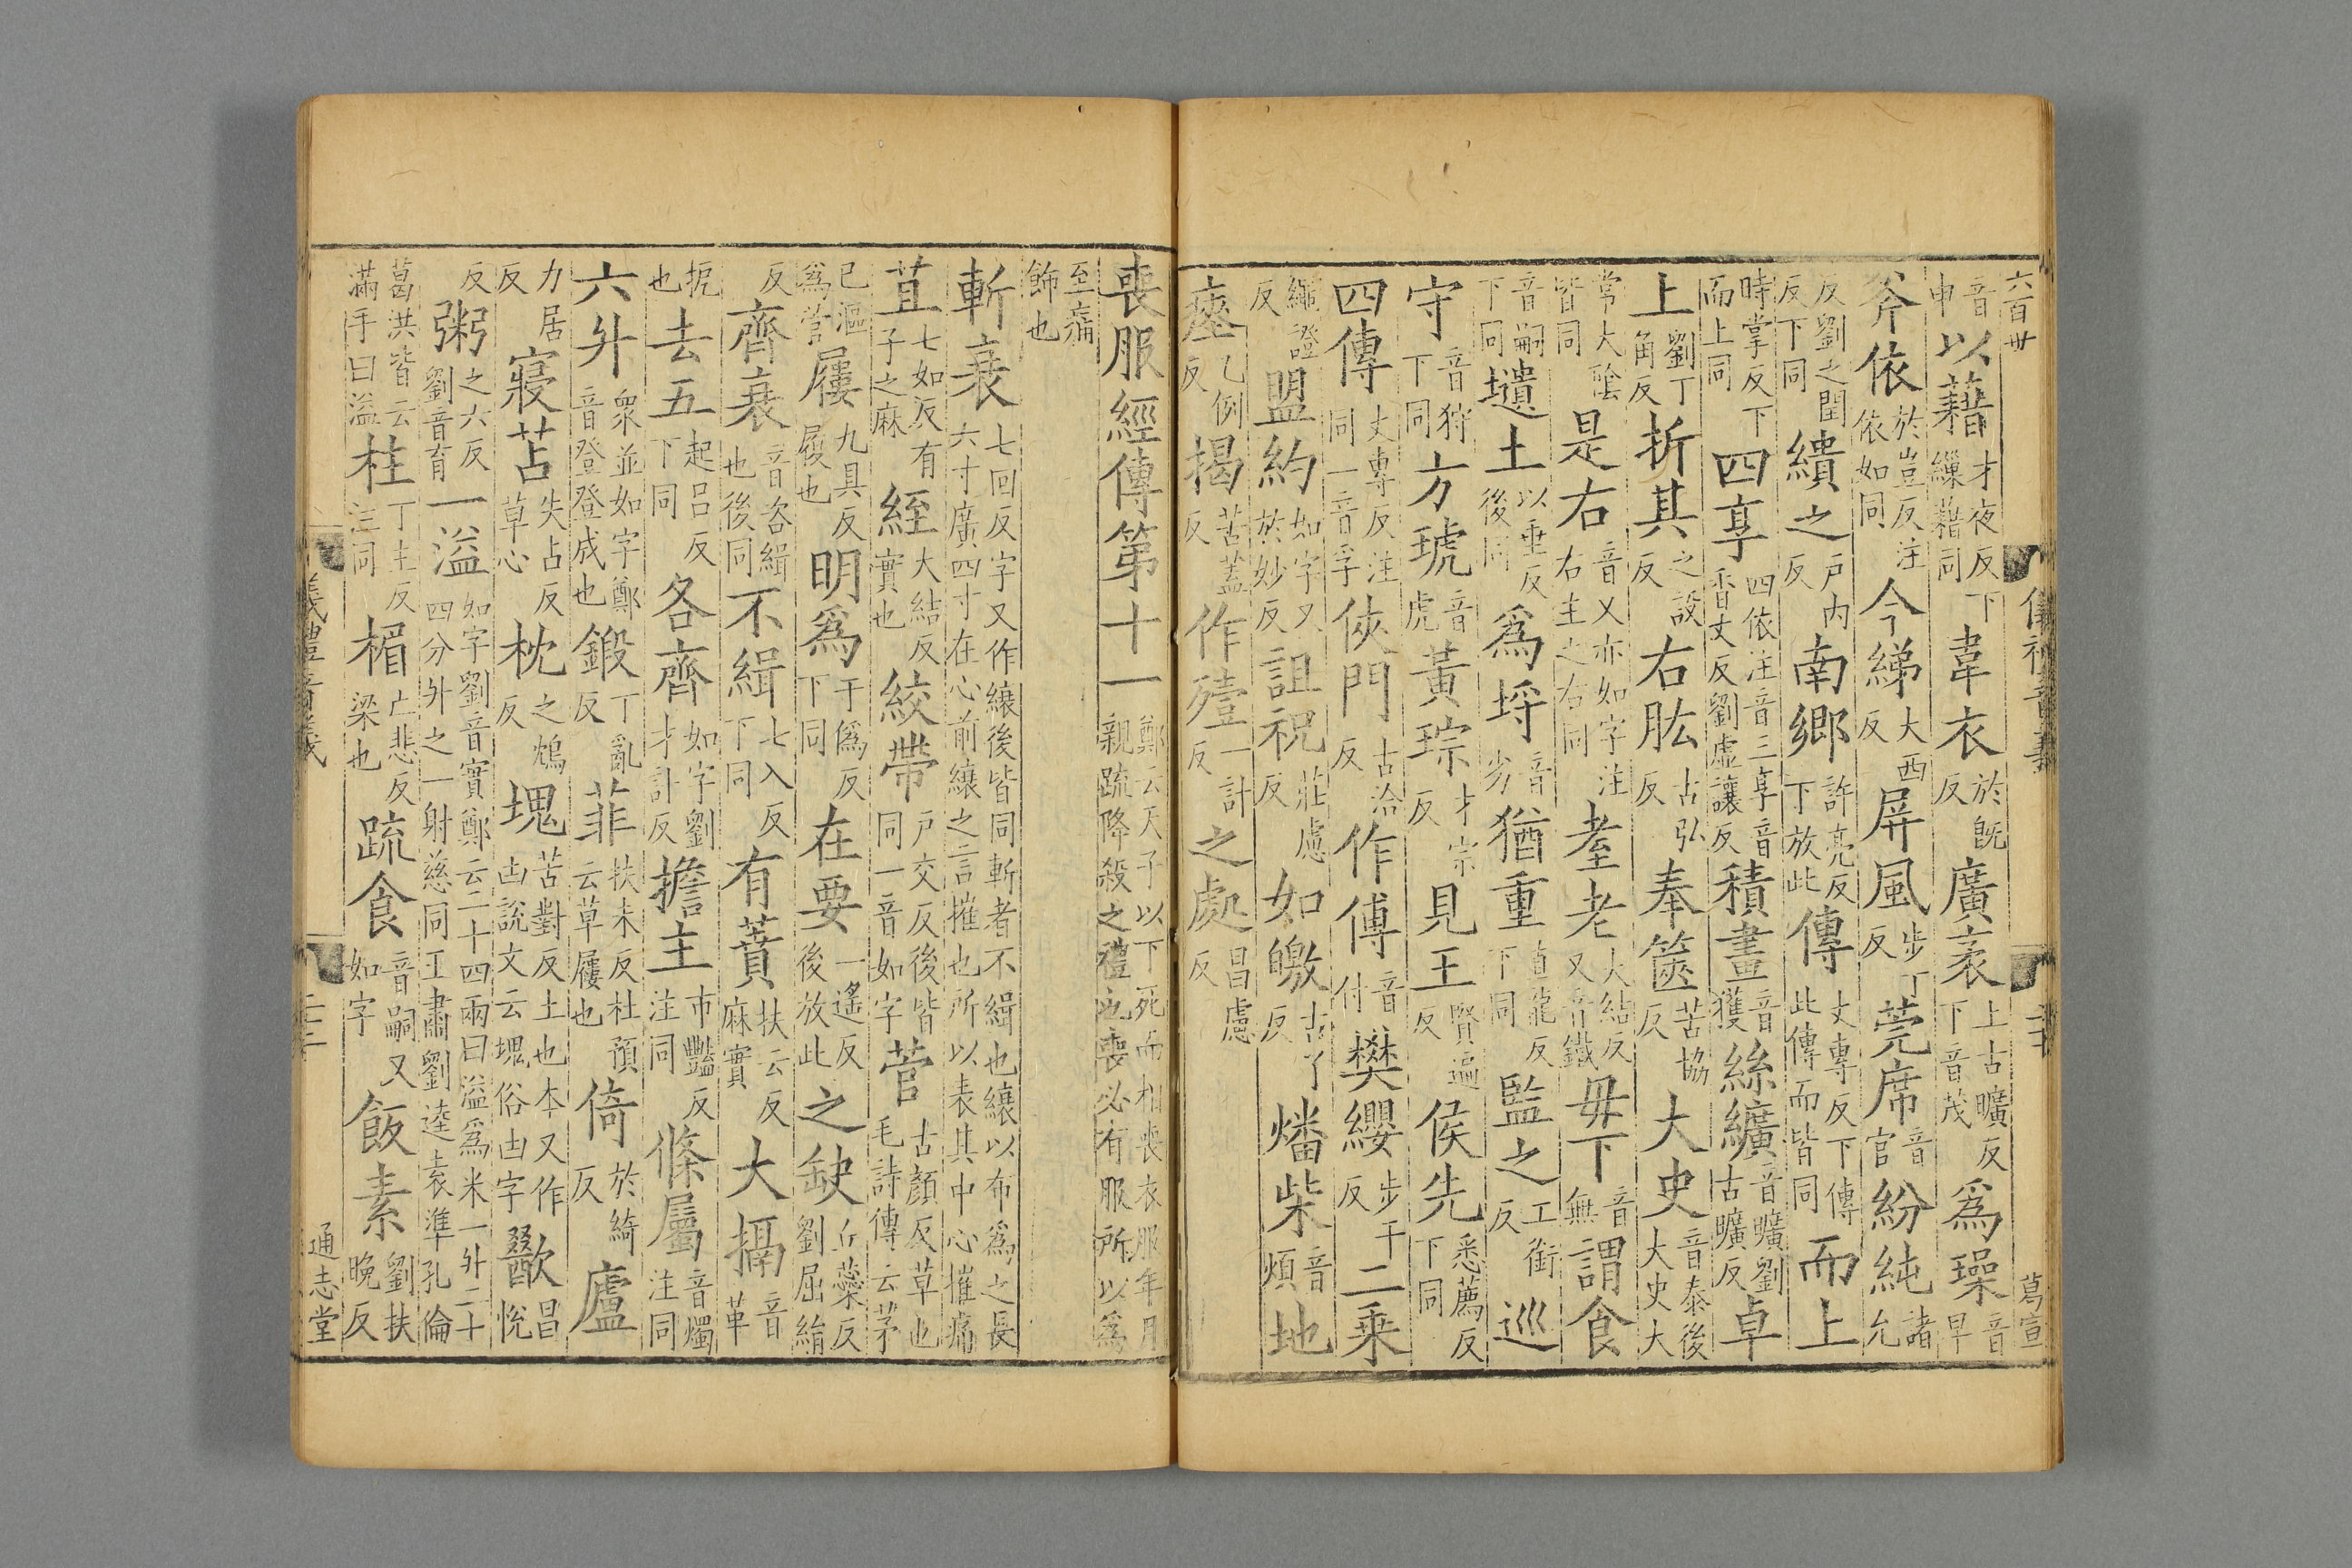 六百卅 儀禮音義 葛宣
音申以藉才夜反下繅藉同韋衣於旣反廣袤上古曠反下音茂爲璪音早
斧依於豈反注依如同今綈大西反屏風步丁反莞席音官紛純諸允
反劉之閏反下同繢之戸内反南鄉許亮反下放此傳丈專反下傳此傳而皆同而上
時掌反下而上同四享四依注音三享音香丈反劉虛讓反積畫音獲絲纊音曠劉古曠反卓
上劉丁角反折其之設反右肱古弘反奉篋苦協反大史音泰後大史大
常大隂皆同是右音又亦如字注右主之右同耋老大結反又音鐵毋下音無謂食
音嗣下同壝土以垂反後同爲埒音劣猶重直龍反下同監之工銜反巡
守音狩下同方琥音虎黃琮才宗反見王賢遍反侯先悉薦反下同
四傳丈專反注同一音孚俠門古洽反作傅音付樊纓步干反二乗
繩證反盟約如字又於妙反詛祝莊慮反如皦古了反燔柴音煩地
瘞乙例反揭苦蓋反作殪一計反之處昌慮反
喪服經傳第十一鄭云天子以下死而相喪衣服年月親疏降殺之禮也喪必有服所以爲
至痛飾也
斬衰七回反字又作縗後皆同斬者不緝也縗以布爲之長六寸廣四寸在心前縗之言摧也所以表其中心摧痛
苴七如反有子之麻絰大結反實也絞帶戸交反後皆同一音如字菅古顏反草也毛詩傳云茅
已漚爲菅屨九具反屨也明爲于僞反下同在要一遙反後放此之缺丘蘂反劉屈絹
反齊衰音咨緝也後同不緝七入反下同有蕡扶云反麻實大搹音革
扼也去五起呂反下同各齊如字劉才計反擔主市豔反注同條屬音燭注同
六升衆並如字鄭音登登成也鍛丁亂反菲扶未反杜預云草屨也倚於綺反廬
力居反寢苫失占反草心枕之鴆反塊苦對反土也本又作凷説文云塊俗凷字歠昌悅
反粥之六反劉音育一溢如字劉音實鄭云二十四兩曰溢爲米一升二十四分升之一射慈同王肅劉逵袁準孔倫
葛洪皆云滿手曰溢柱丁主反注同楣亡悲反梁也疏食音嗣又如字飯素劉扶晩反
儀禮音義 通志堂